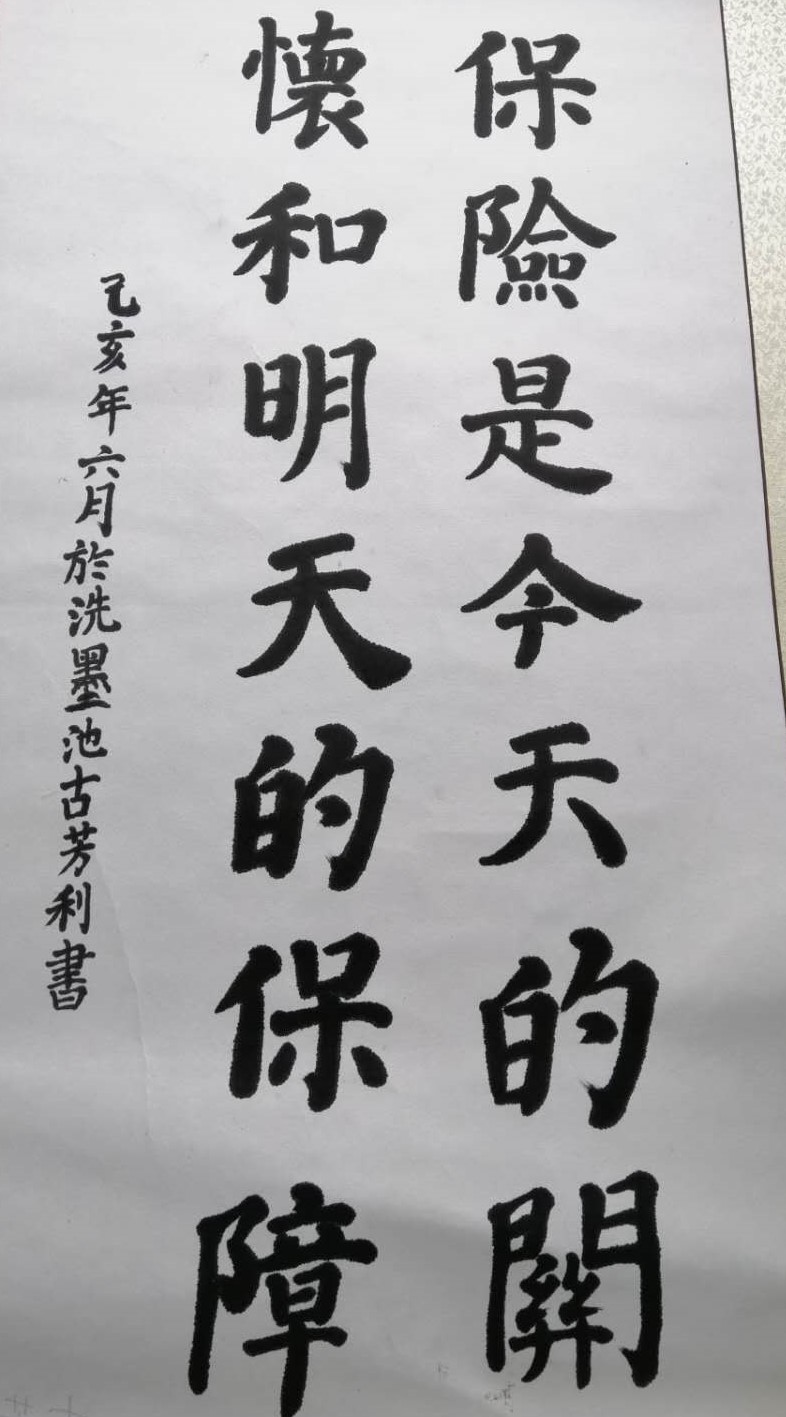 保險是今天的關
懷和明天的保障
己亥年六月於洗墨池古芳利書